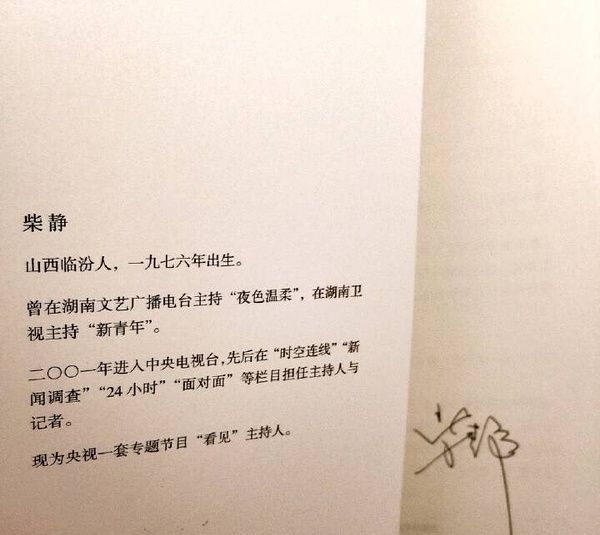 柴静
山西临汾人，一九七六年出生。
曾在湖南文艺广播电台主持“夜色温柔”，在湖南卫
视主持“新青年”。
二〇〇一年进入中央电视台，先后在“时空连线”“新
闻调查”“24小时”“面对面”等栏目担任主持人与
记者。
现为央视一套专题节目“看见”主持人。
柴静